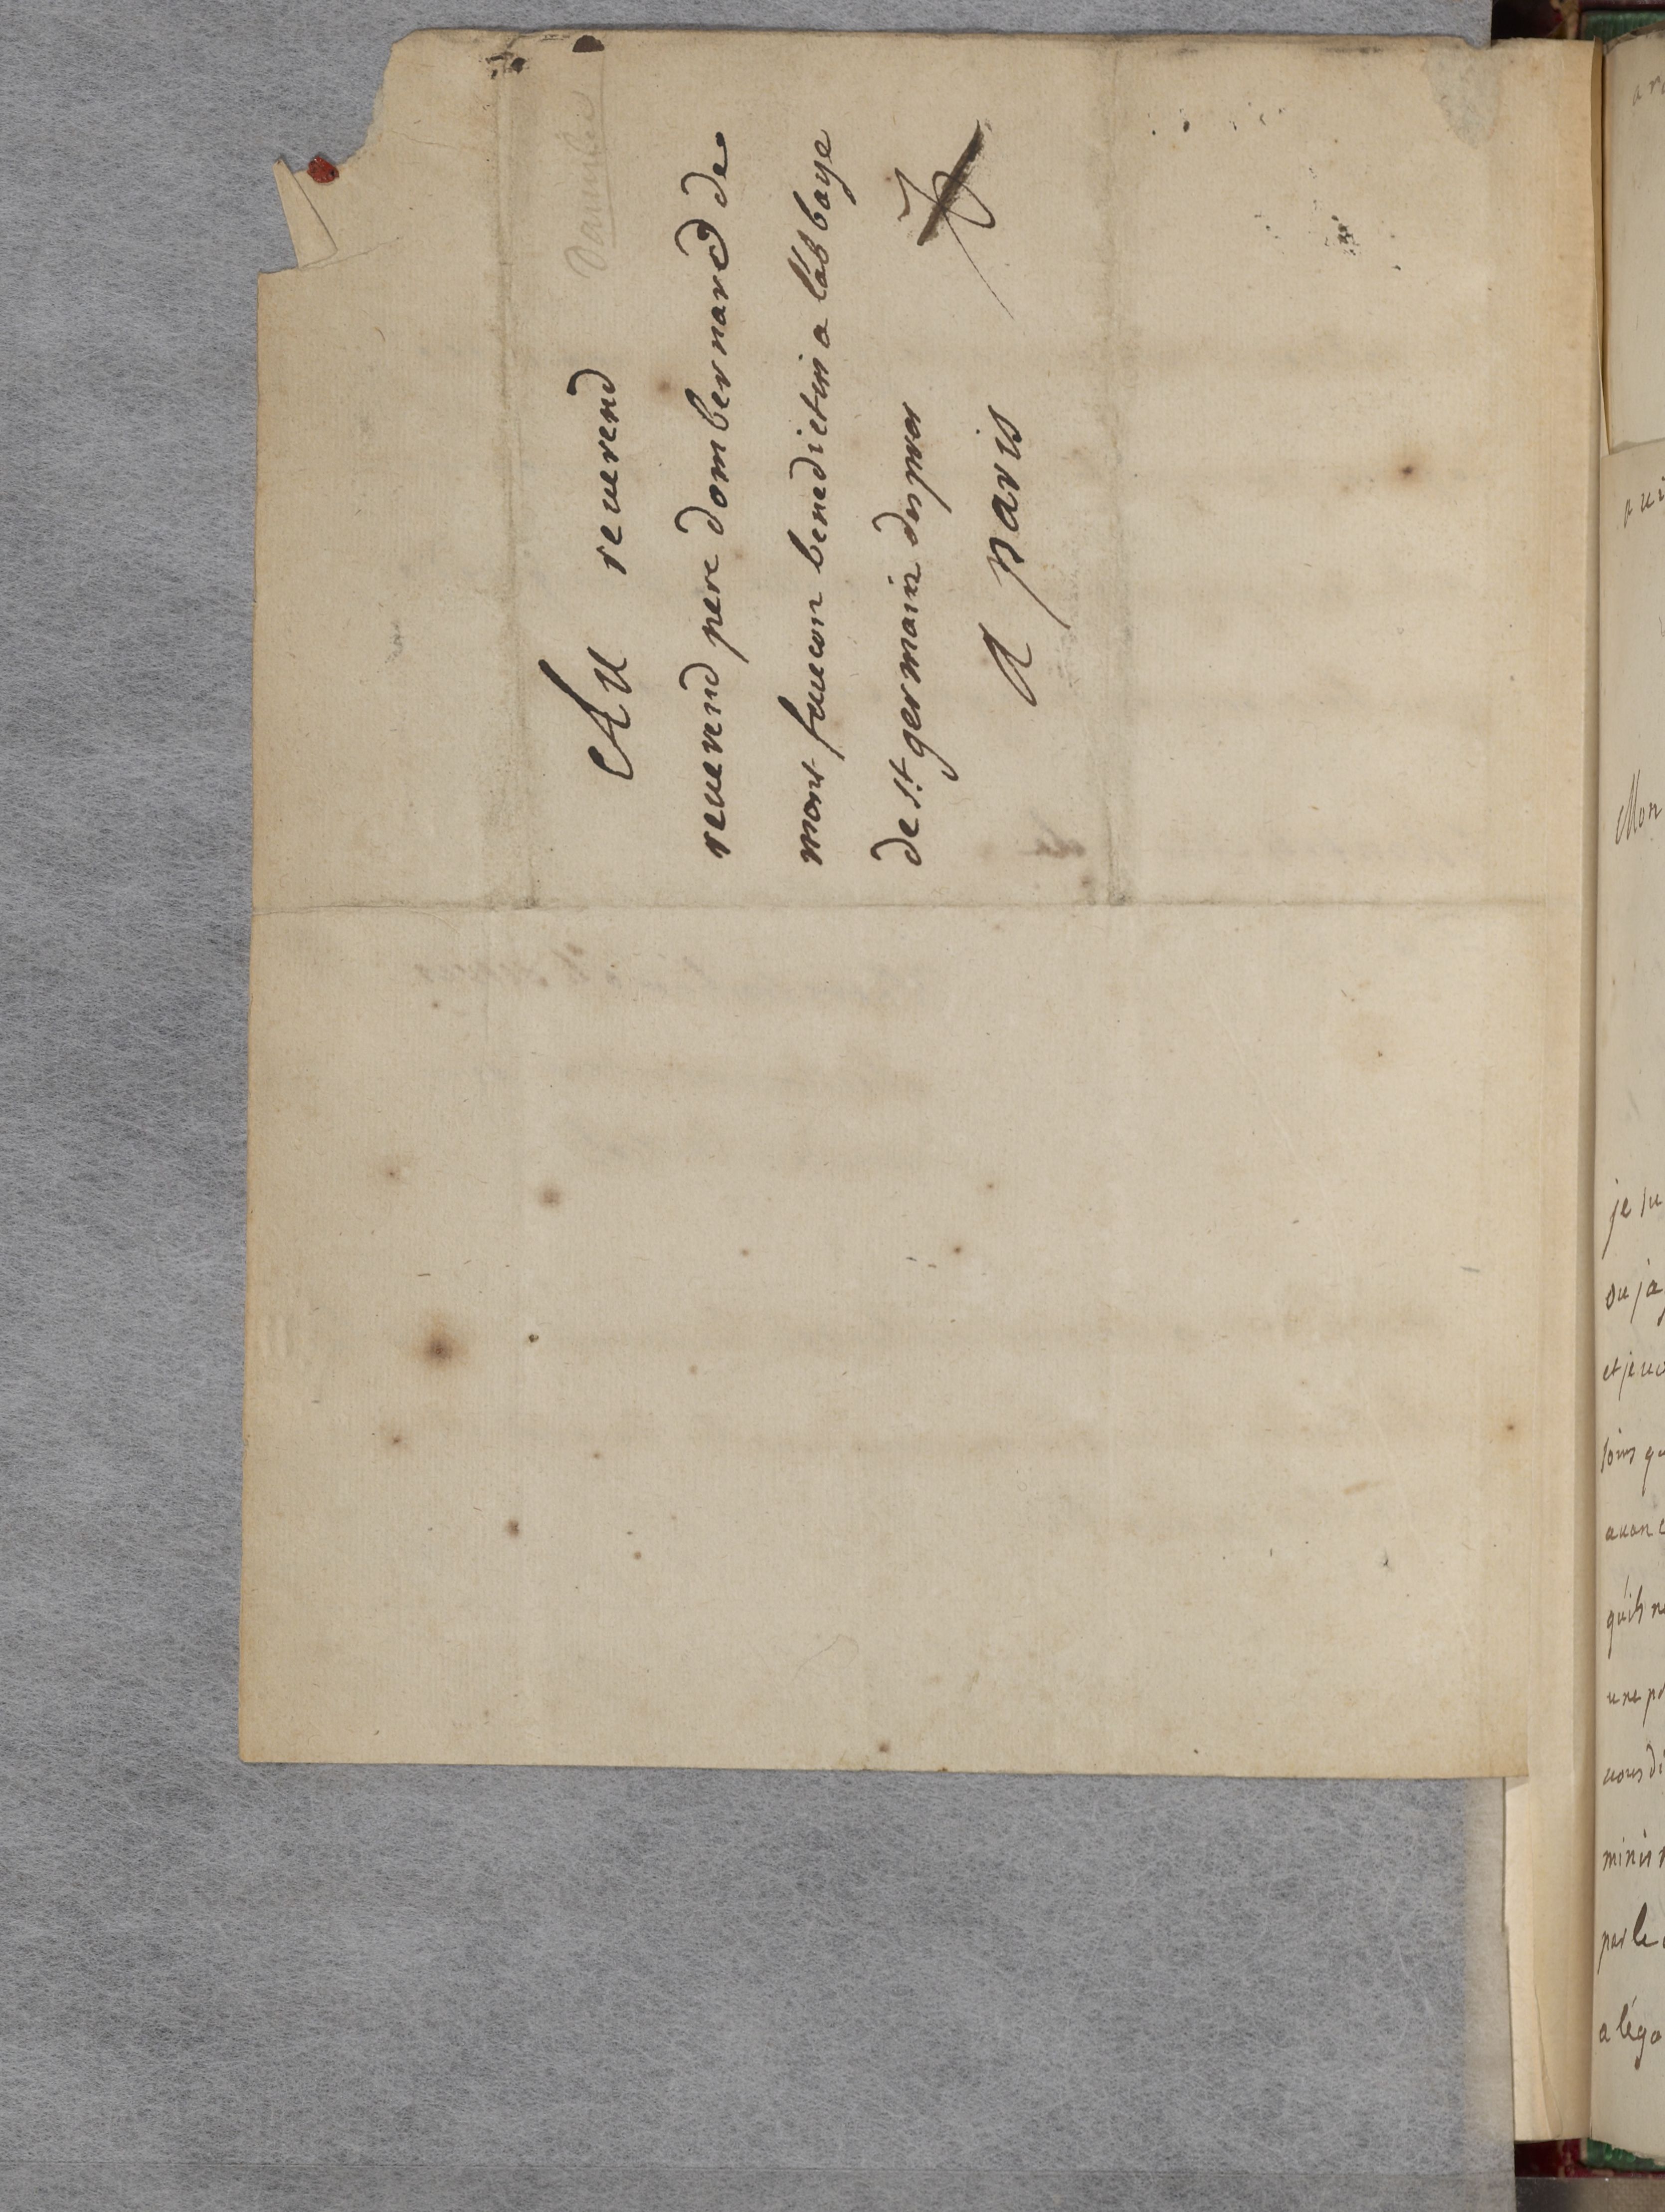 Au reuerend
reuerend pere dom bernard de
mont faucon benedictin a labbaye
de St germain des pres
A paris
Mon
je su
ou ja
et je uo
soins qu
auan
quils n
une po
uous di
minis
par le
a léga